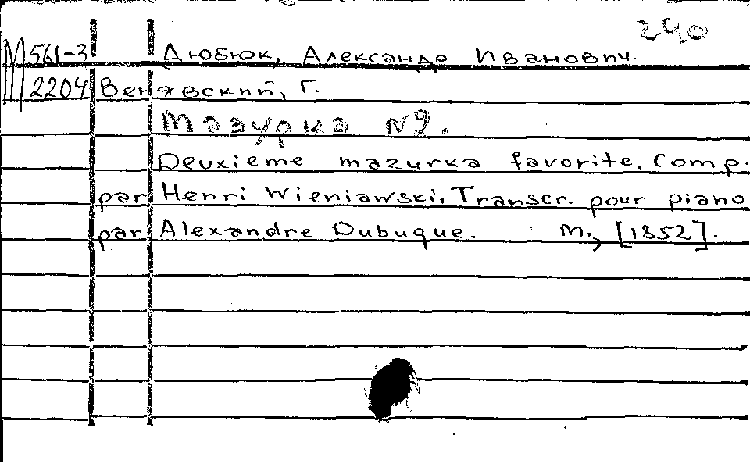 240
М 561-3 Дюбюк, Александр Иванович.
2204 Венявский, Г.
Мазурка №2.
Deuxieme mazurka favorite. Comp.
par Henri Wieniawski. Transcr. pour piano
par Alexandre Dubuque. М., [1852].